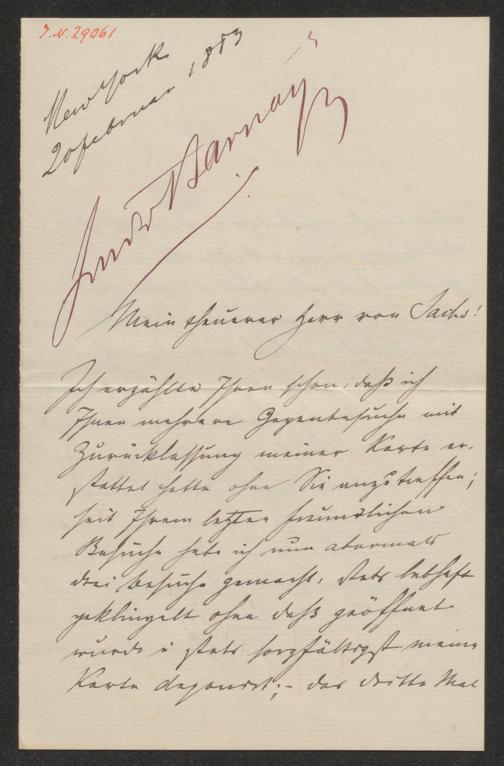 J.N. 29061
New York
20 februar 1883
Ludw Barnay
Mein theurer Herr von Sachs!
Ich erzählte Ihnen schon, daß ich
Ihnen mehrere Gegenbesuche mit
Zurücklassung meiner Karte er-
stattet hatte ohne Sie anzutreffen;
seit Ihrem letzten freundlichen
Besuche habe ich nun abermals
drei Besuche gemacht, stets lebhaft
geklingelt ohne daß geöffnet
wurde u stets sorgfältigst meine
Karte deponirt; – das dritte Mal